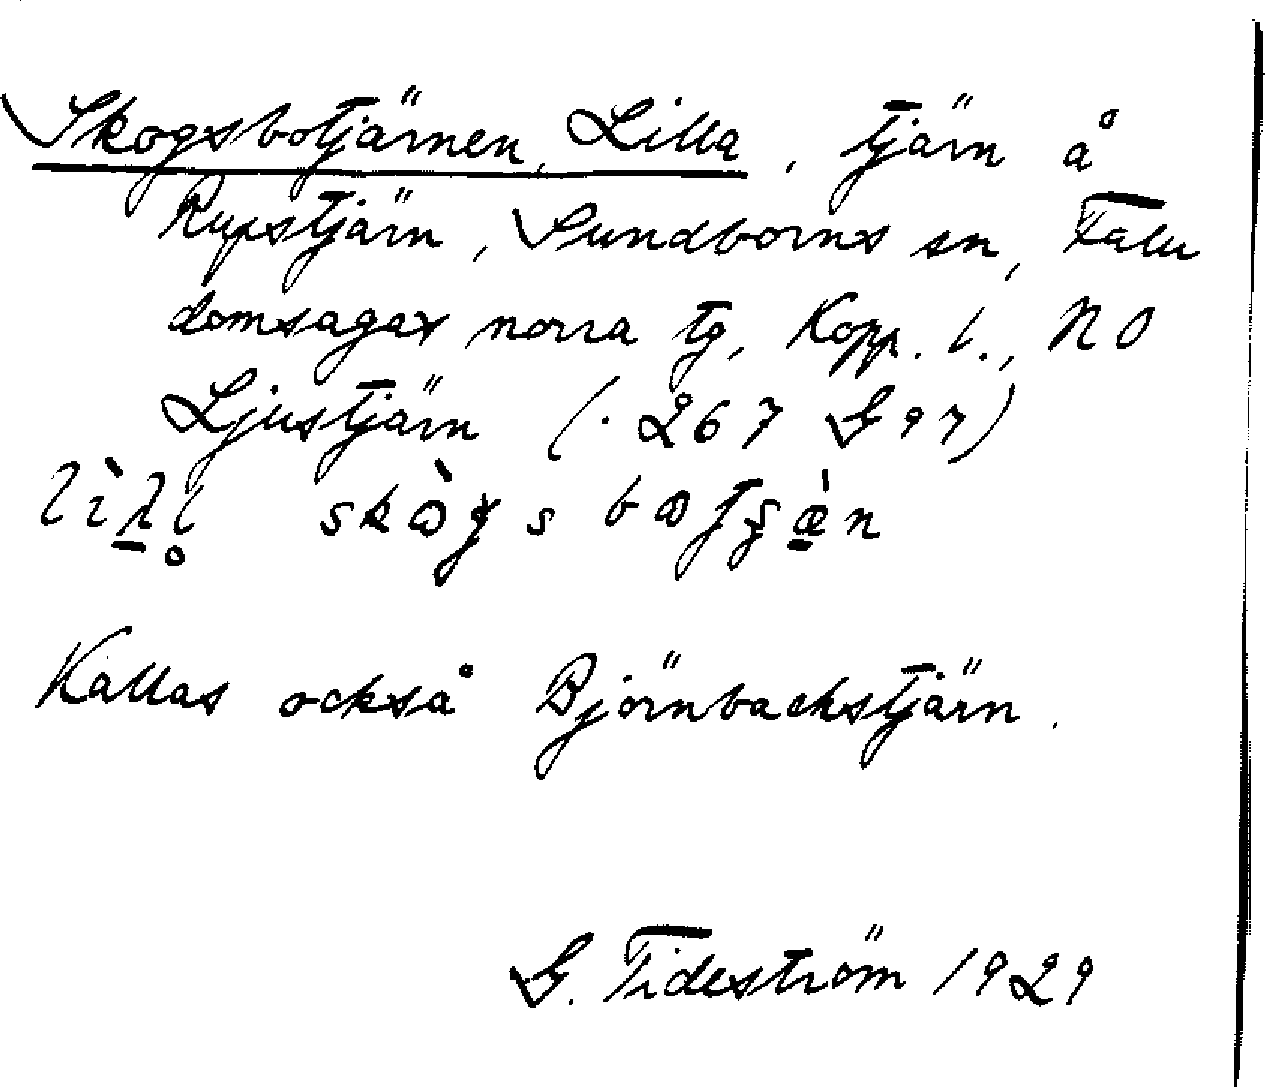 Skogsbotjärnen, Lilla, tjärn å
Rupstjärn, Sundborns sn, Falu
domsagas norra tg, Kopp. l., NO
Ljustjärn (. 267 G 97)
Kallas också Björnbackstjärn.
G. Tideström 1929